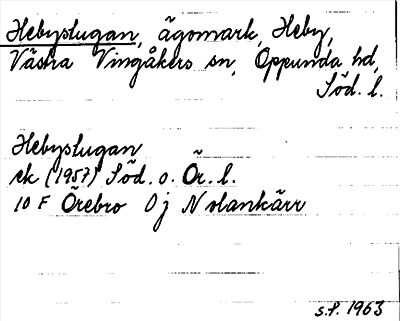 Hebyslugan, ägomark, Heby,
Västra Vingåkers sn, Oppunda hd,
Söd. l.
Hebyslugan
ek (1957) Söd. o. Ör. l.
10 F Örebro 0 j N olankärr
s.f. 1963